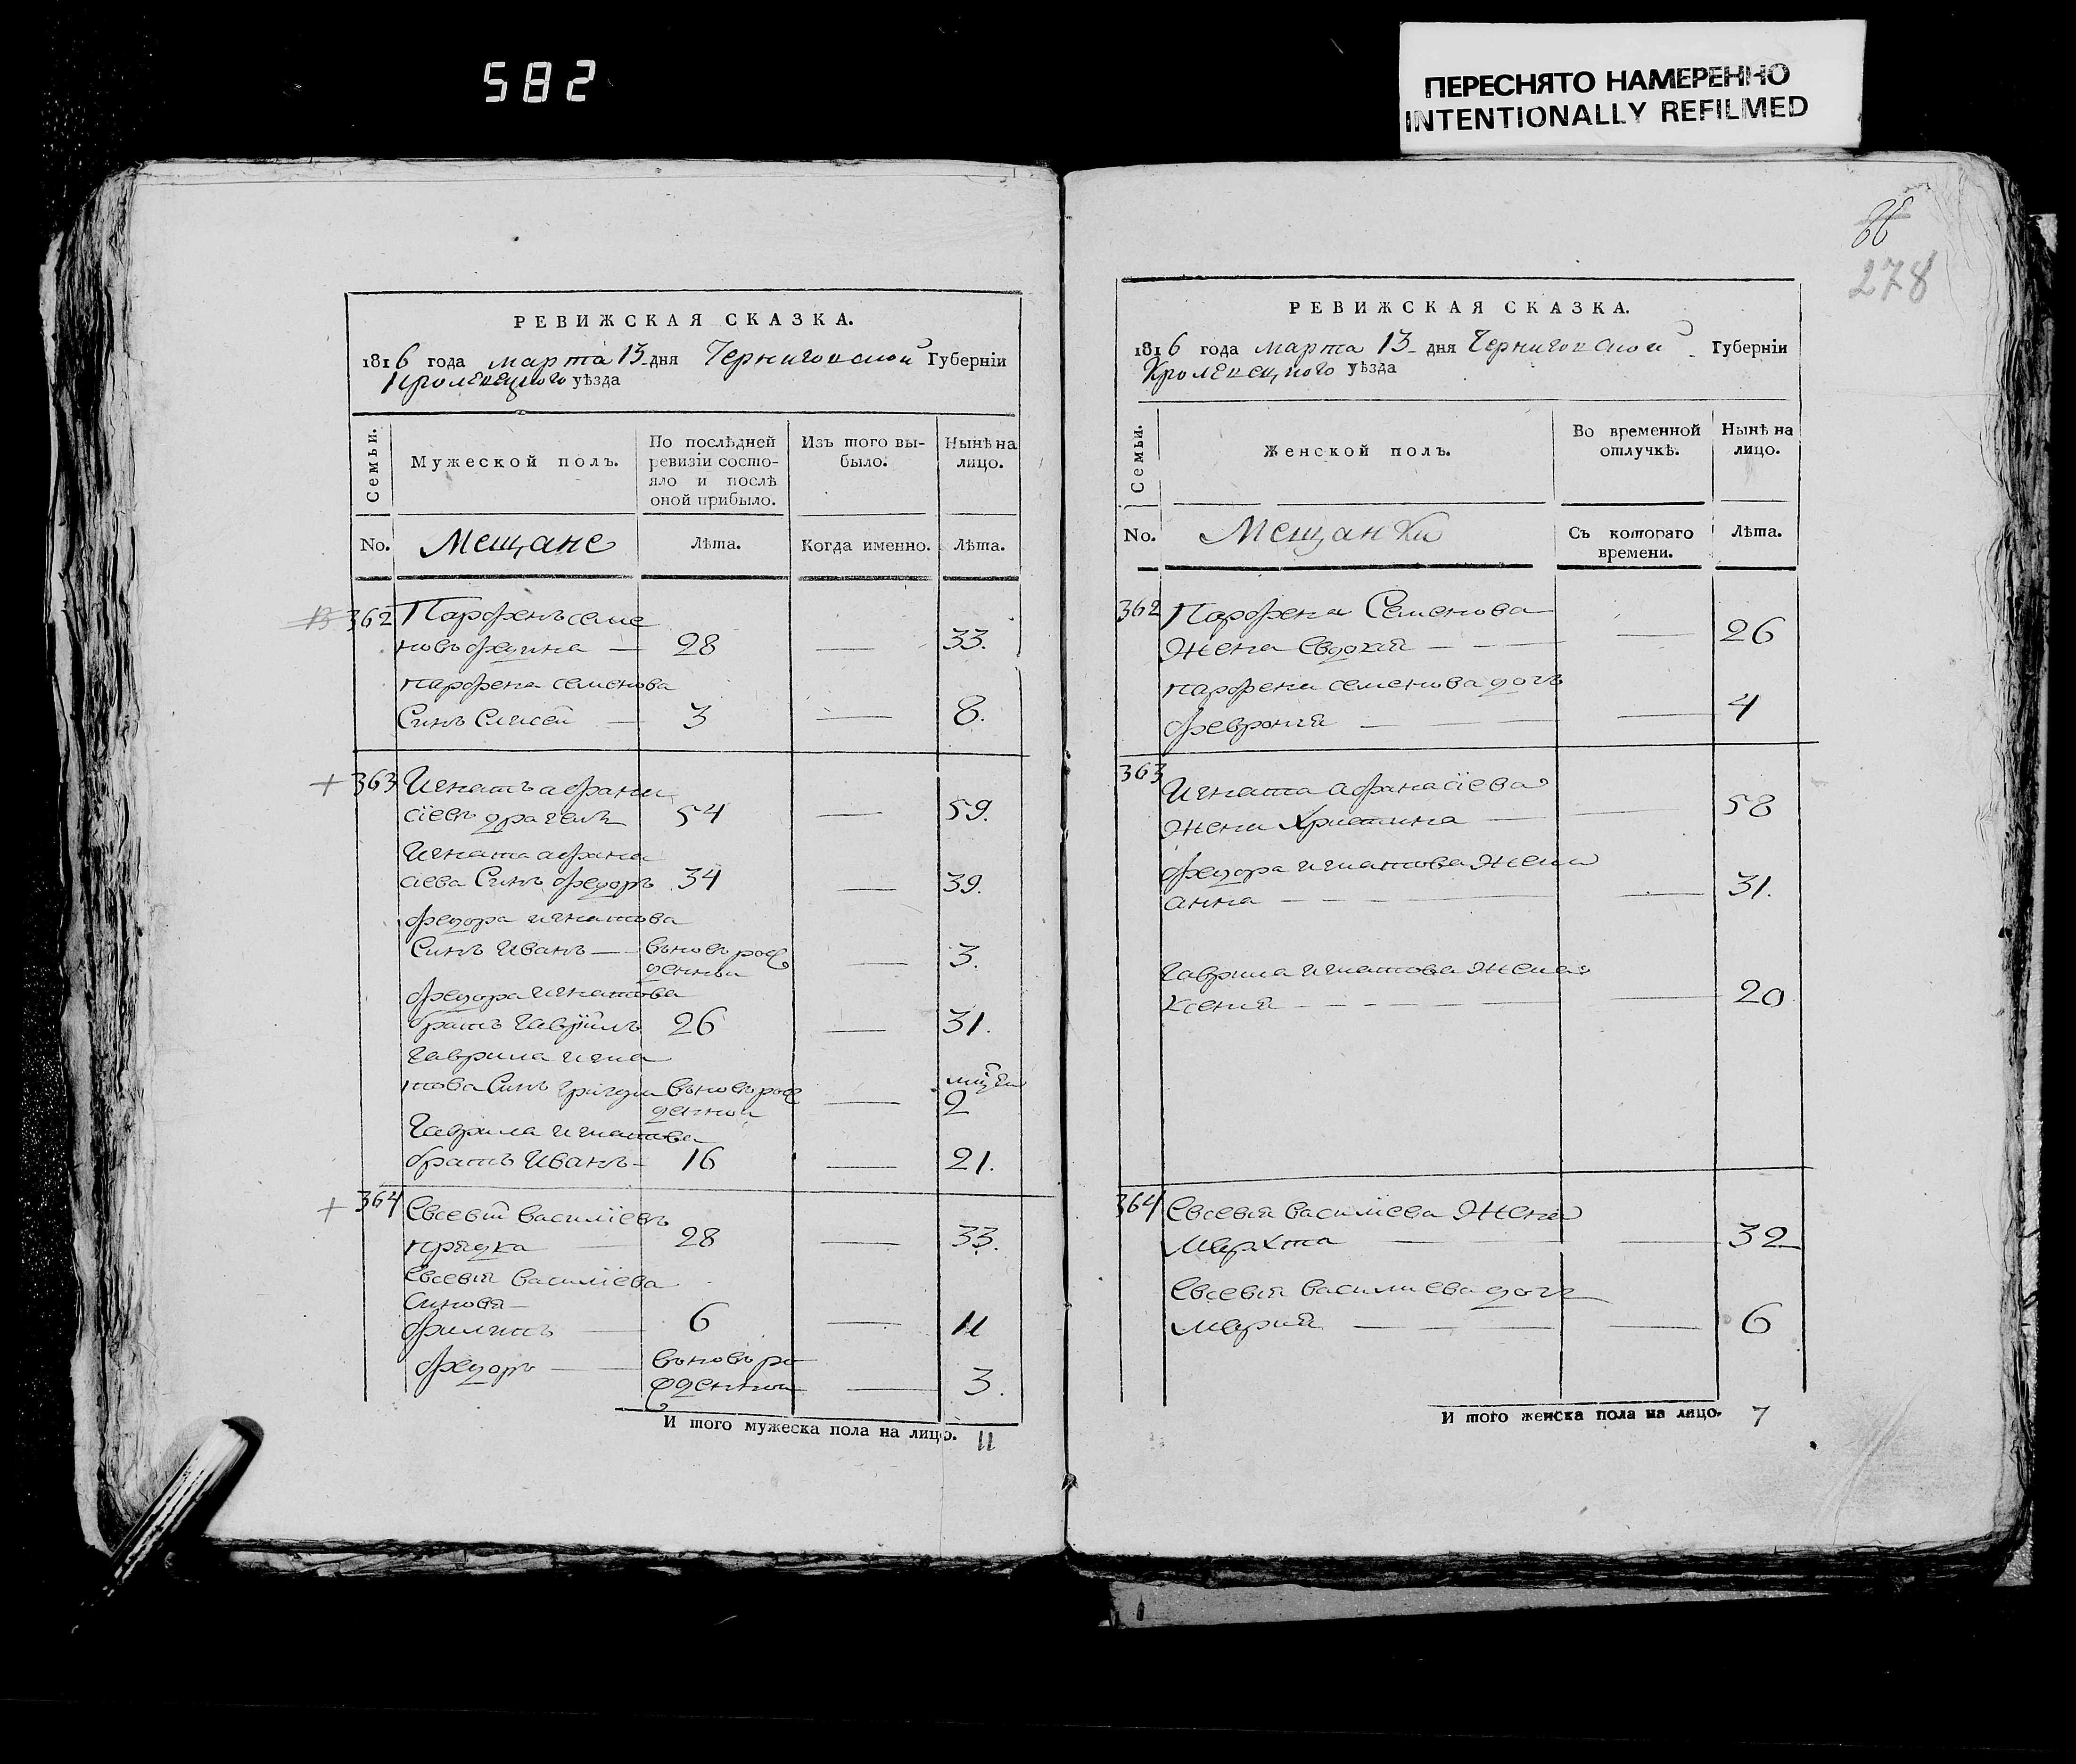 582
ПЕРЕСНЯТО НАМЕРЕННО
INTENTIONALLY REFILMED
278
РЕВИЖСКАЯ СКАЗКА.
1816 года марта 13 дня Черниговской Губерніи
Кролевецкого уѣзда
Семьи.
Мужеской полъ.
По послѣдней
ревизіи состо-
яло и послѣ
оной прибыло.
Изъ того вы-
было.
Нынѣ на
лицо.
No.
Мещане
Лѣта.
Когда именно.
Лѣта.
362 Парфенъ Семе
новъ 28 — 33.
Парфена Семенова
Синъ 3 — 8.
363 Игнатъ афана
сіевъ 54 — 59.
Игната афана
сиева Синъ федоръ 34 — 39.
федора игнатова
Синъ Иванъ — вновь рож
денны — 3.
федора игнатова
братъ гаврiилъ 26 — 31.
гаврила игна
това Синъ григори вновь рож
денной — 2
гаврила игнатова
братъ Иванъ — 16 — 21.
364 Евсевiй василiевъ
прядка — 28 — 33.
Евсевiя василiева
Синовя —
филипъ — 6 — 11
федоръ — вновь ро
жденной — 3.
И того мужеска пола на лицо. 11
РЕВИЖСКАЯ СКАЗКА.
1816 года марта 13 дня Черниговской Губерніи
Кролевецкого уѣзда
Семьи.
Женской полъ.
Во временной
отлучкѣ.
Нынѣ на
лицо.
No.
Мещанки
Съ котораго
времени.
Лѣта.
362 Парфена Семенова
Жена Евдокия — — — 26
парфена семенова дочь
феврония — — — 4
363 Игната афанасiева
Жена Христина — — 58
федора игнатова Жена
анна — — — — 31.
гаврила игнатова Жена
Ксения — — — — 20
364 Евсевiя василiева Жена
Марχта — — — 32
Евсевiя василиева дочь
Мария — — — 6
И того женска пола на лицо. 7